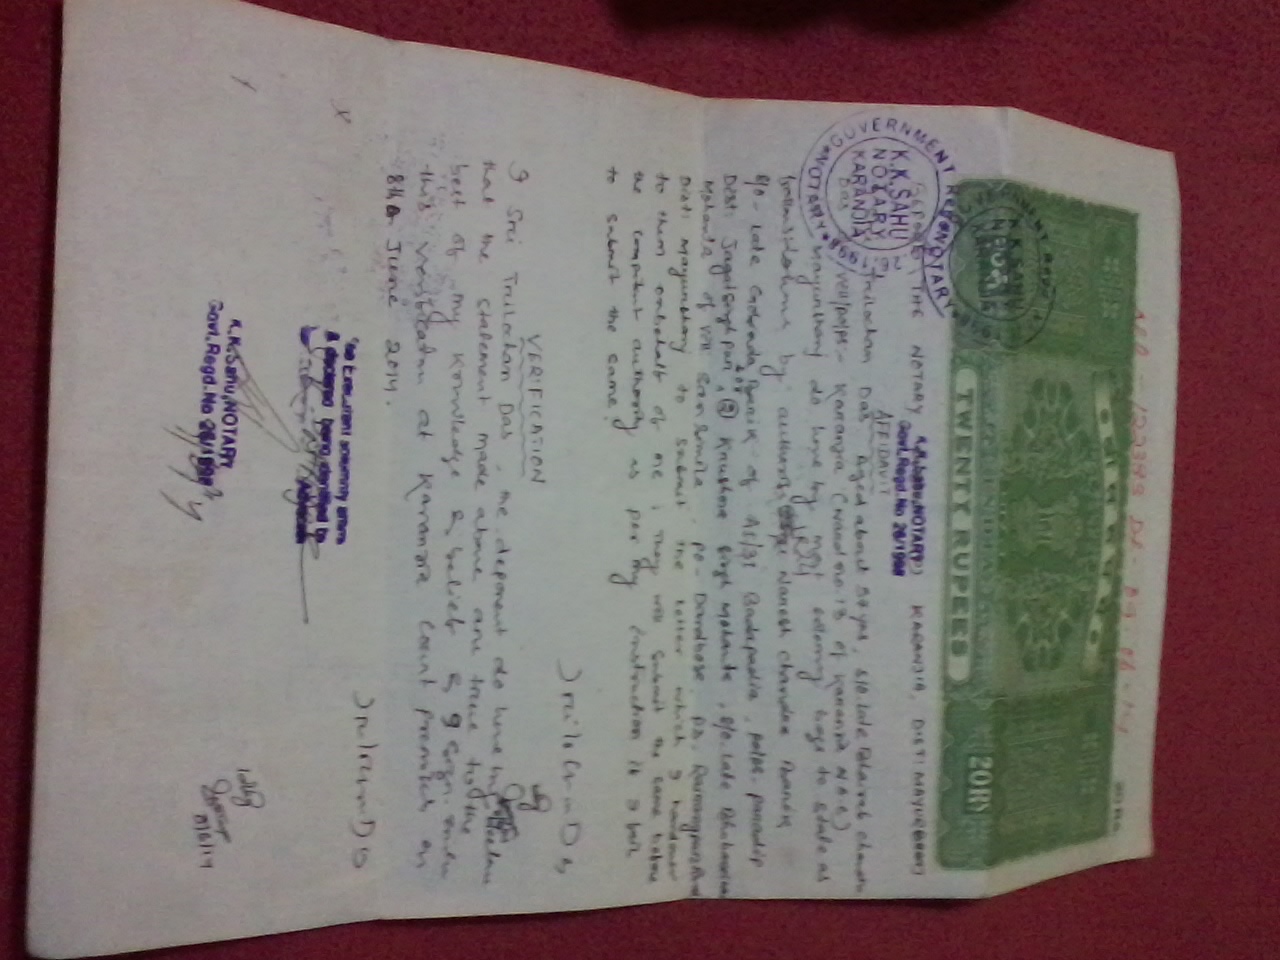 122393 Dt- 09-06-14
20 Rs.
TWENTY RUPEES
20 Rs
K.K.SAHU
NOTARY
KARANJIA
GOVERNMENT Regd. 26/1998
NOTARY
BEFORE THE NOTARY K.K.Sahu, NOTARY KARANJIA, DIST: MAYURBHANJ
Govt. Regd. No 26/1998
AFFIDAVIT
Trilochan Das Aged about 57 yrs, S/o. Late Bhairab Chandra
Das vill/po/ps:- Karanjia (Ward no. 13 of Karanjia N.A.C)
Mayurbhanj do here by most solemnly to state as
by Naresh Chandra Banik
S/o- Late Banik of AS/31 Badapadia, po/ps- paradip
Dist: Jagatsinghpur, ② Krushna Singh Mohanta, S/o. Late
Mohanta of vill po- Dandbose, ps.
Dist: Mayurbhanj to submit the letter which I handover
to them onbehalf of me, They will submit the same before
the compitent authority as per my instruction if I fail
to submit the same.
Trilochan Das
VERIFICATION
I Sri Trilochan Das, the deponent do here by declare
that the statement made above are true to the
best of my knowledge & belief & I sign
this verification at Karanjia Court premises on
8th June 2014.
Trilochan Das
The Executant solemnly affirm
& declared being identified by
Advocate
K.K.Sahu, NOTARY
Govt. Regd. No 26/1998
8/6/14